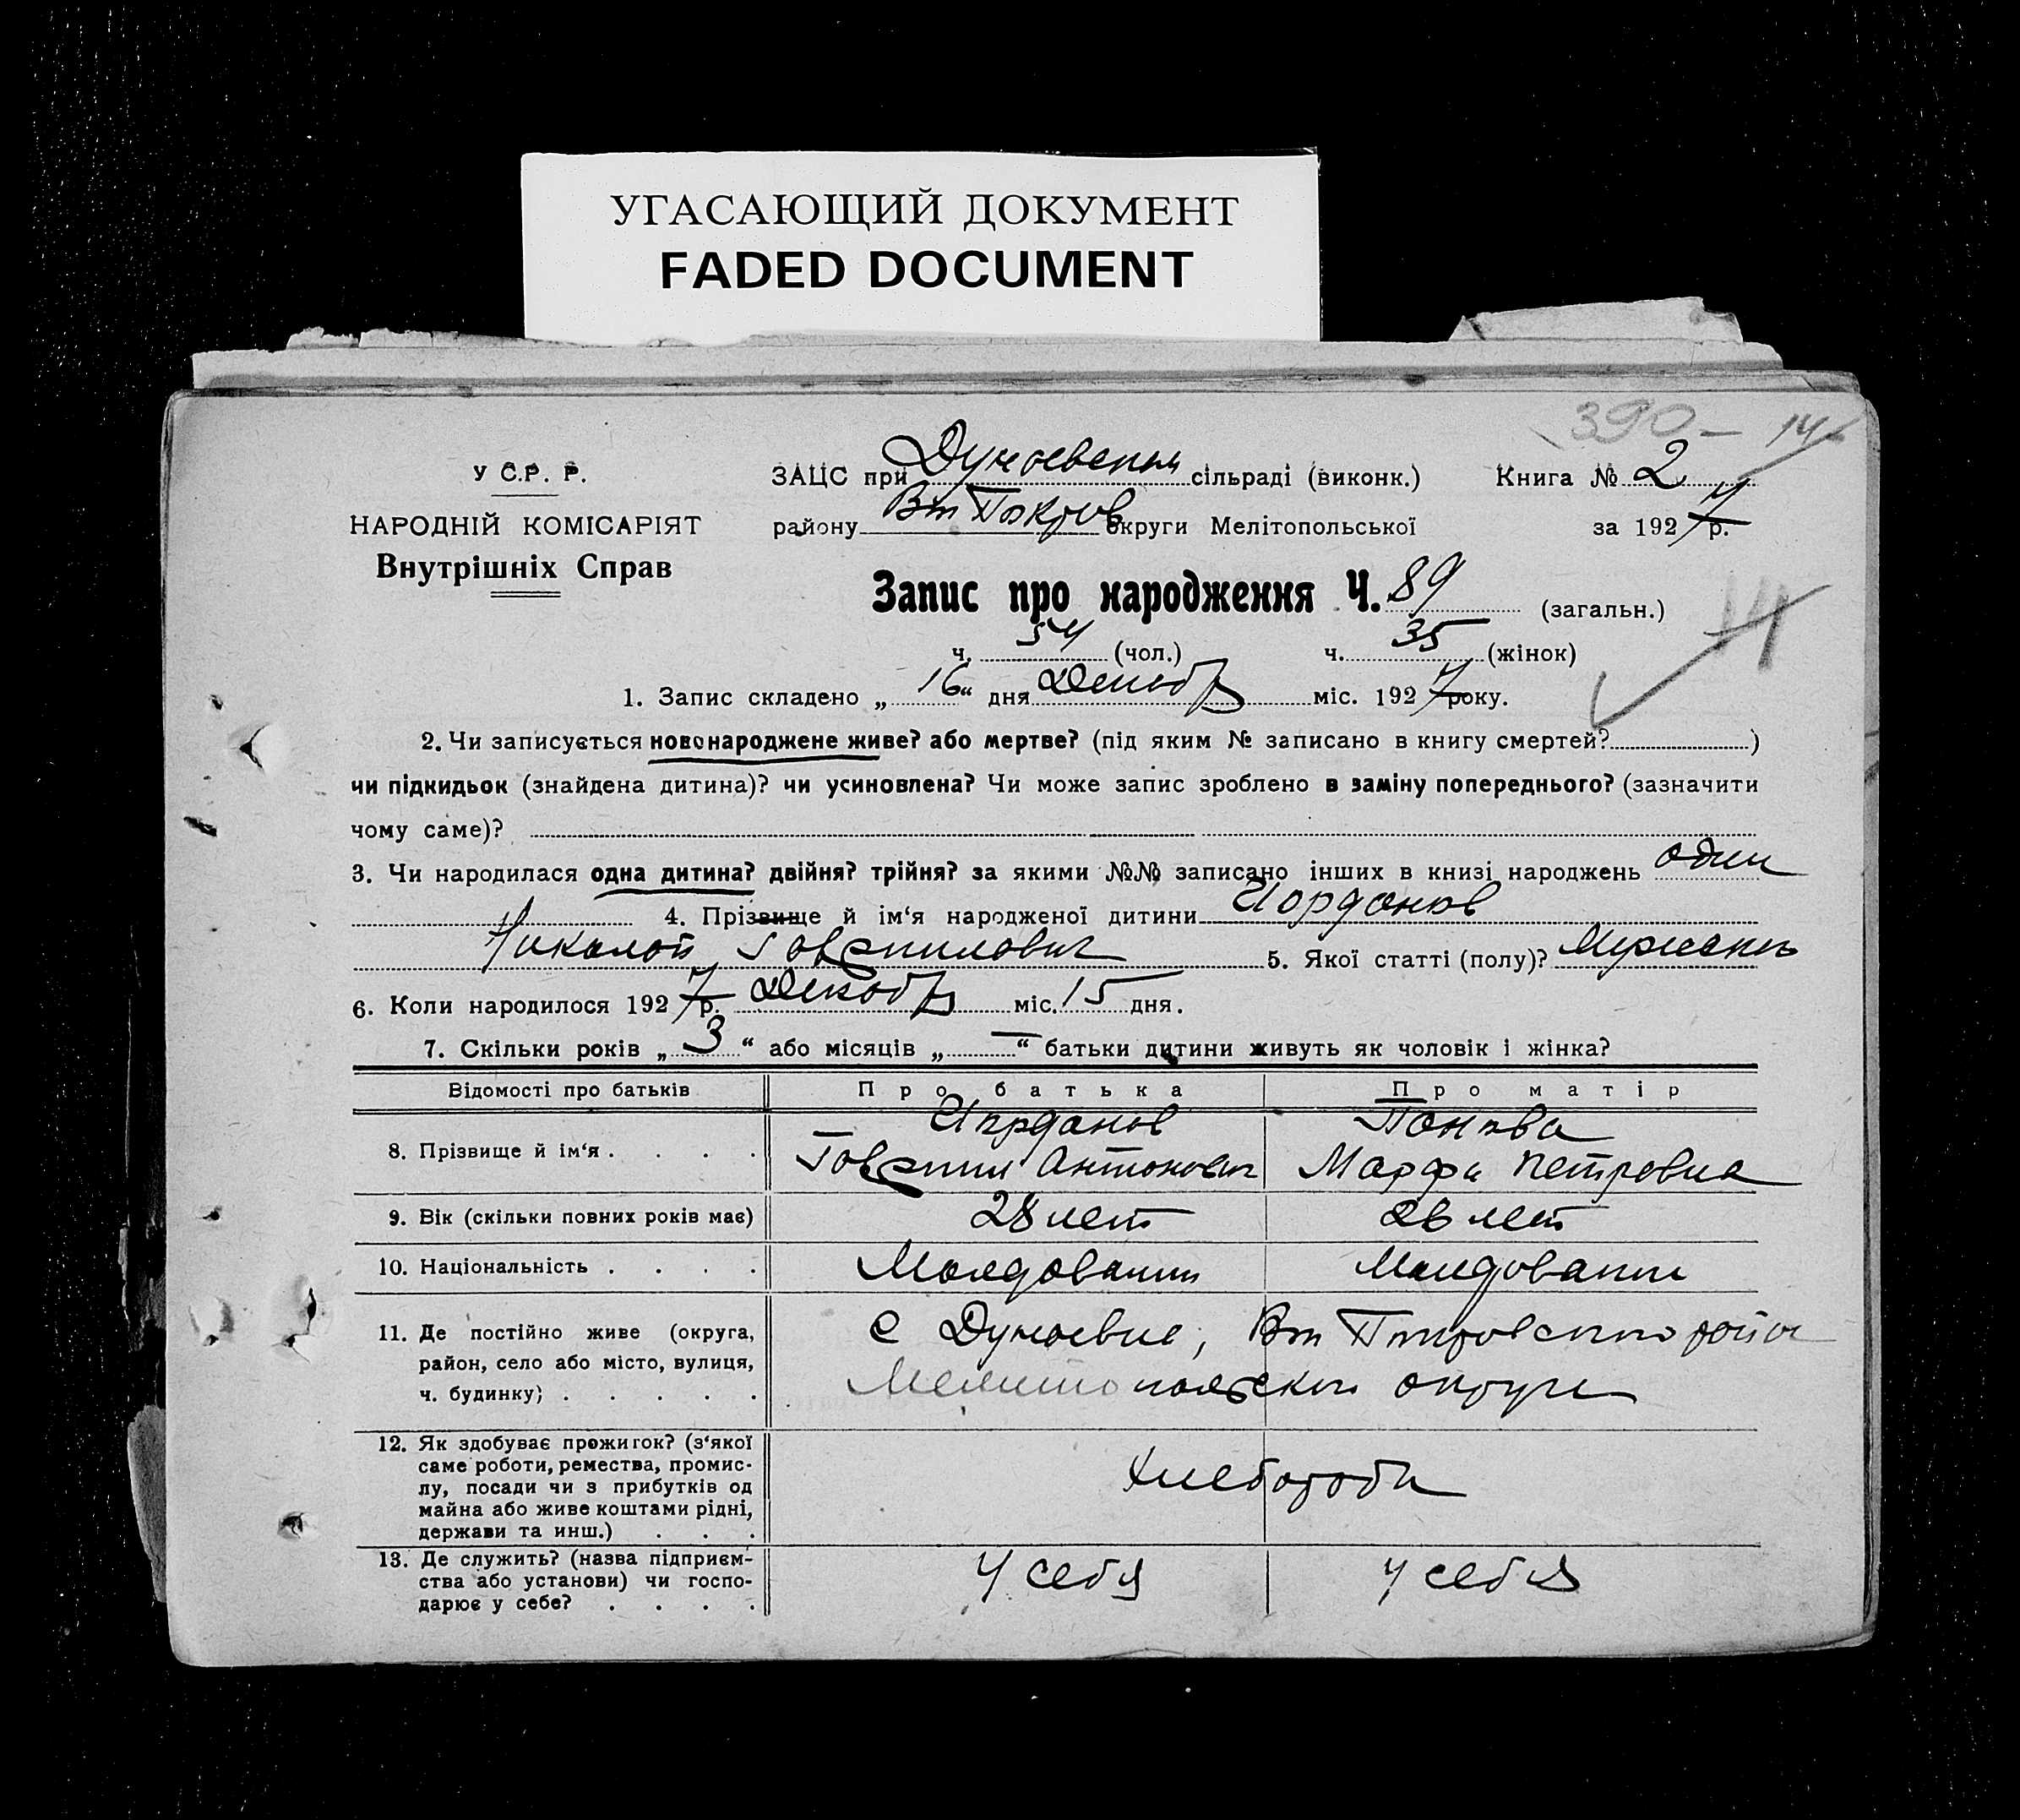 УГАСАЮЩИЙ ДОКУМЕНТ
FADED DOCUMENT
390 – 14
У С.Р.Р.
НАРОДНІЙ КОМІСАРІЯТ
Внутрішніх Справ
ЗАЦС при Дунаевской сільраді (виконк.) Книга № 2
району Вт Покров округи Мелітопольської за 1927 р.
Запис про народження Ч. 89 (загальн.)
ч. 54 (чол.) ч. 35 (жінок)
14
1. Запис складено „16“ дня Декабр міс. 1927 року.
2. Чи записується новонароджене живе? або мертве? (під яким № записано в книгу смертей? )
чи підкидьок (знайдена дитина)? чи усиновлена? Чи може запис зроблено в заміну попереднього? (зазначити
чому саме)?
3. Чи народилася одна дитина? двійня? трійня? за якими №№ записано інших в книзі народжень один
4. Прізвище й ім‘я народженої дитини Иорданов
Николай Гаврилович 5. Якої статті (полу)? Мужеский
6. Коли народилося 1927 р. Декабр міс. 15 дня.
7. Скільки років „3“ або місяців „—“ батьки дитини живуть як чоловік і жінка?
Відомості про батьків Про батька Про матір
8. Прізвище й ім‘я . . . . Иорданов Гаврил Антонович Попова Марфа Петровна
9. Вік (скільки повних років має) 28 лет 26 лет
10. Національність . . . . Молдовании Молдовании
11. Де постійно живе (округа,
район, село або місто, вулиця,
ч. будинку) . . . . .
с Дунаевка, Вт Покровского район
Мелитопольской округи
12. Як здобуває прожиток? (з‘якої
саме роботи, ремества, промис-
лу, посади чи з прибутків од
майна або живе коштами рідні,
держави та инш.) . . .
Хлебороби
13. Де служить? (назва підприєм-
ства або установи) чи госпо-
дарює у себе? . . . .
У себя У себя